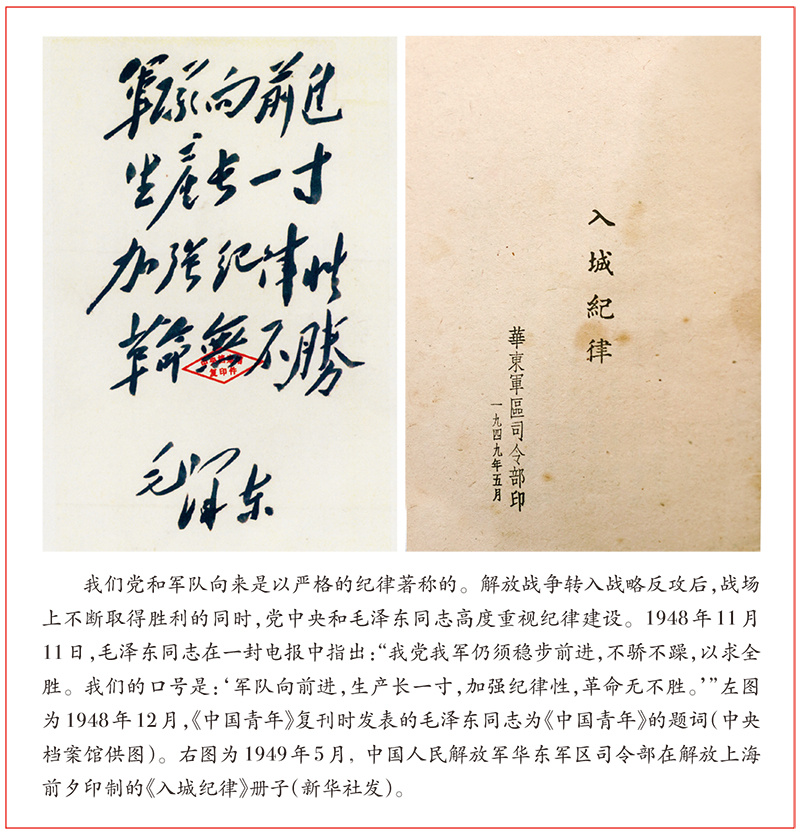 军队向前进
生产长一寸
加强纪律性
革命無不勝
毛泽东
复印件
入城紀律
華東軍區司令部印
一九四九年五月
我们党和军队向来是以严格的纪律著称的。解放战争转入战略反攻后,战场
上不断取得胜利的同时,党中央和毛泽东同志高度重视纪律建设。1948年11月
11日,毛泽东同志在一封电报中指出:“我党我军仍须稳步前进,不骄不躁,以求全
胜。我们的口号是:‘军队向前进,生产长一寸,加强纪律性,革命无不胜。’”左图
为1948年12月,《中国青年》复刊时发表的毛泽东同志为《中国青年》的题词(中央
档案馆供图)。右图为1949年5月,中国人民解放军华东军区司令部在解放上海
前夕印制的《入城纪律》册子(新华社发)。